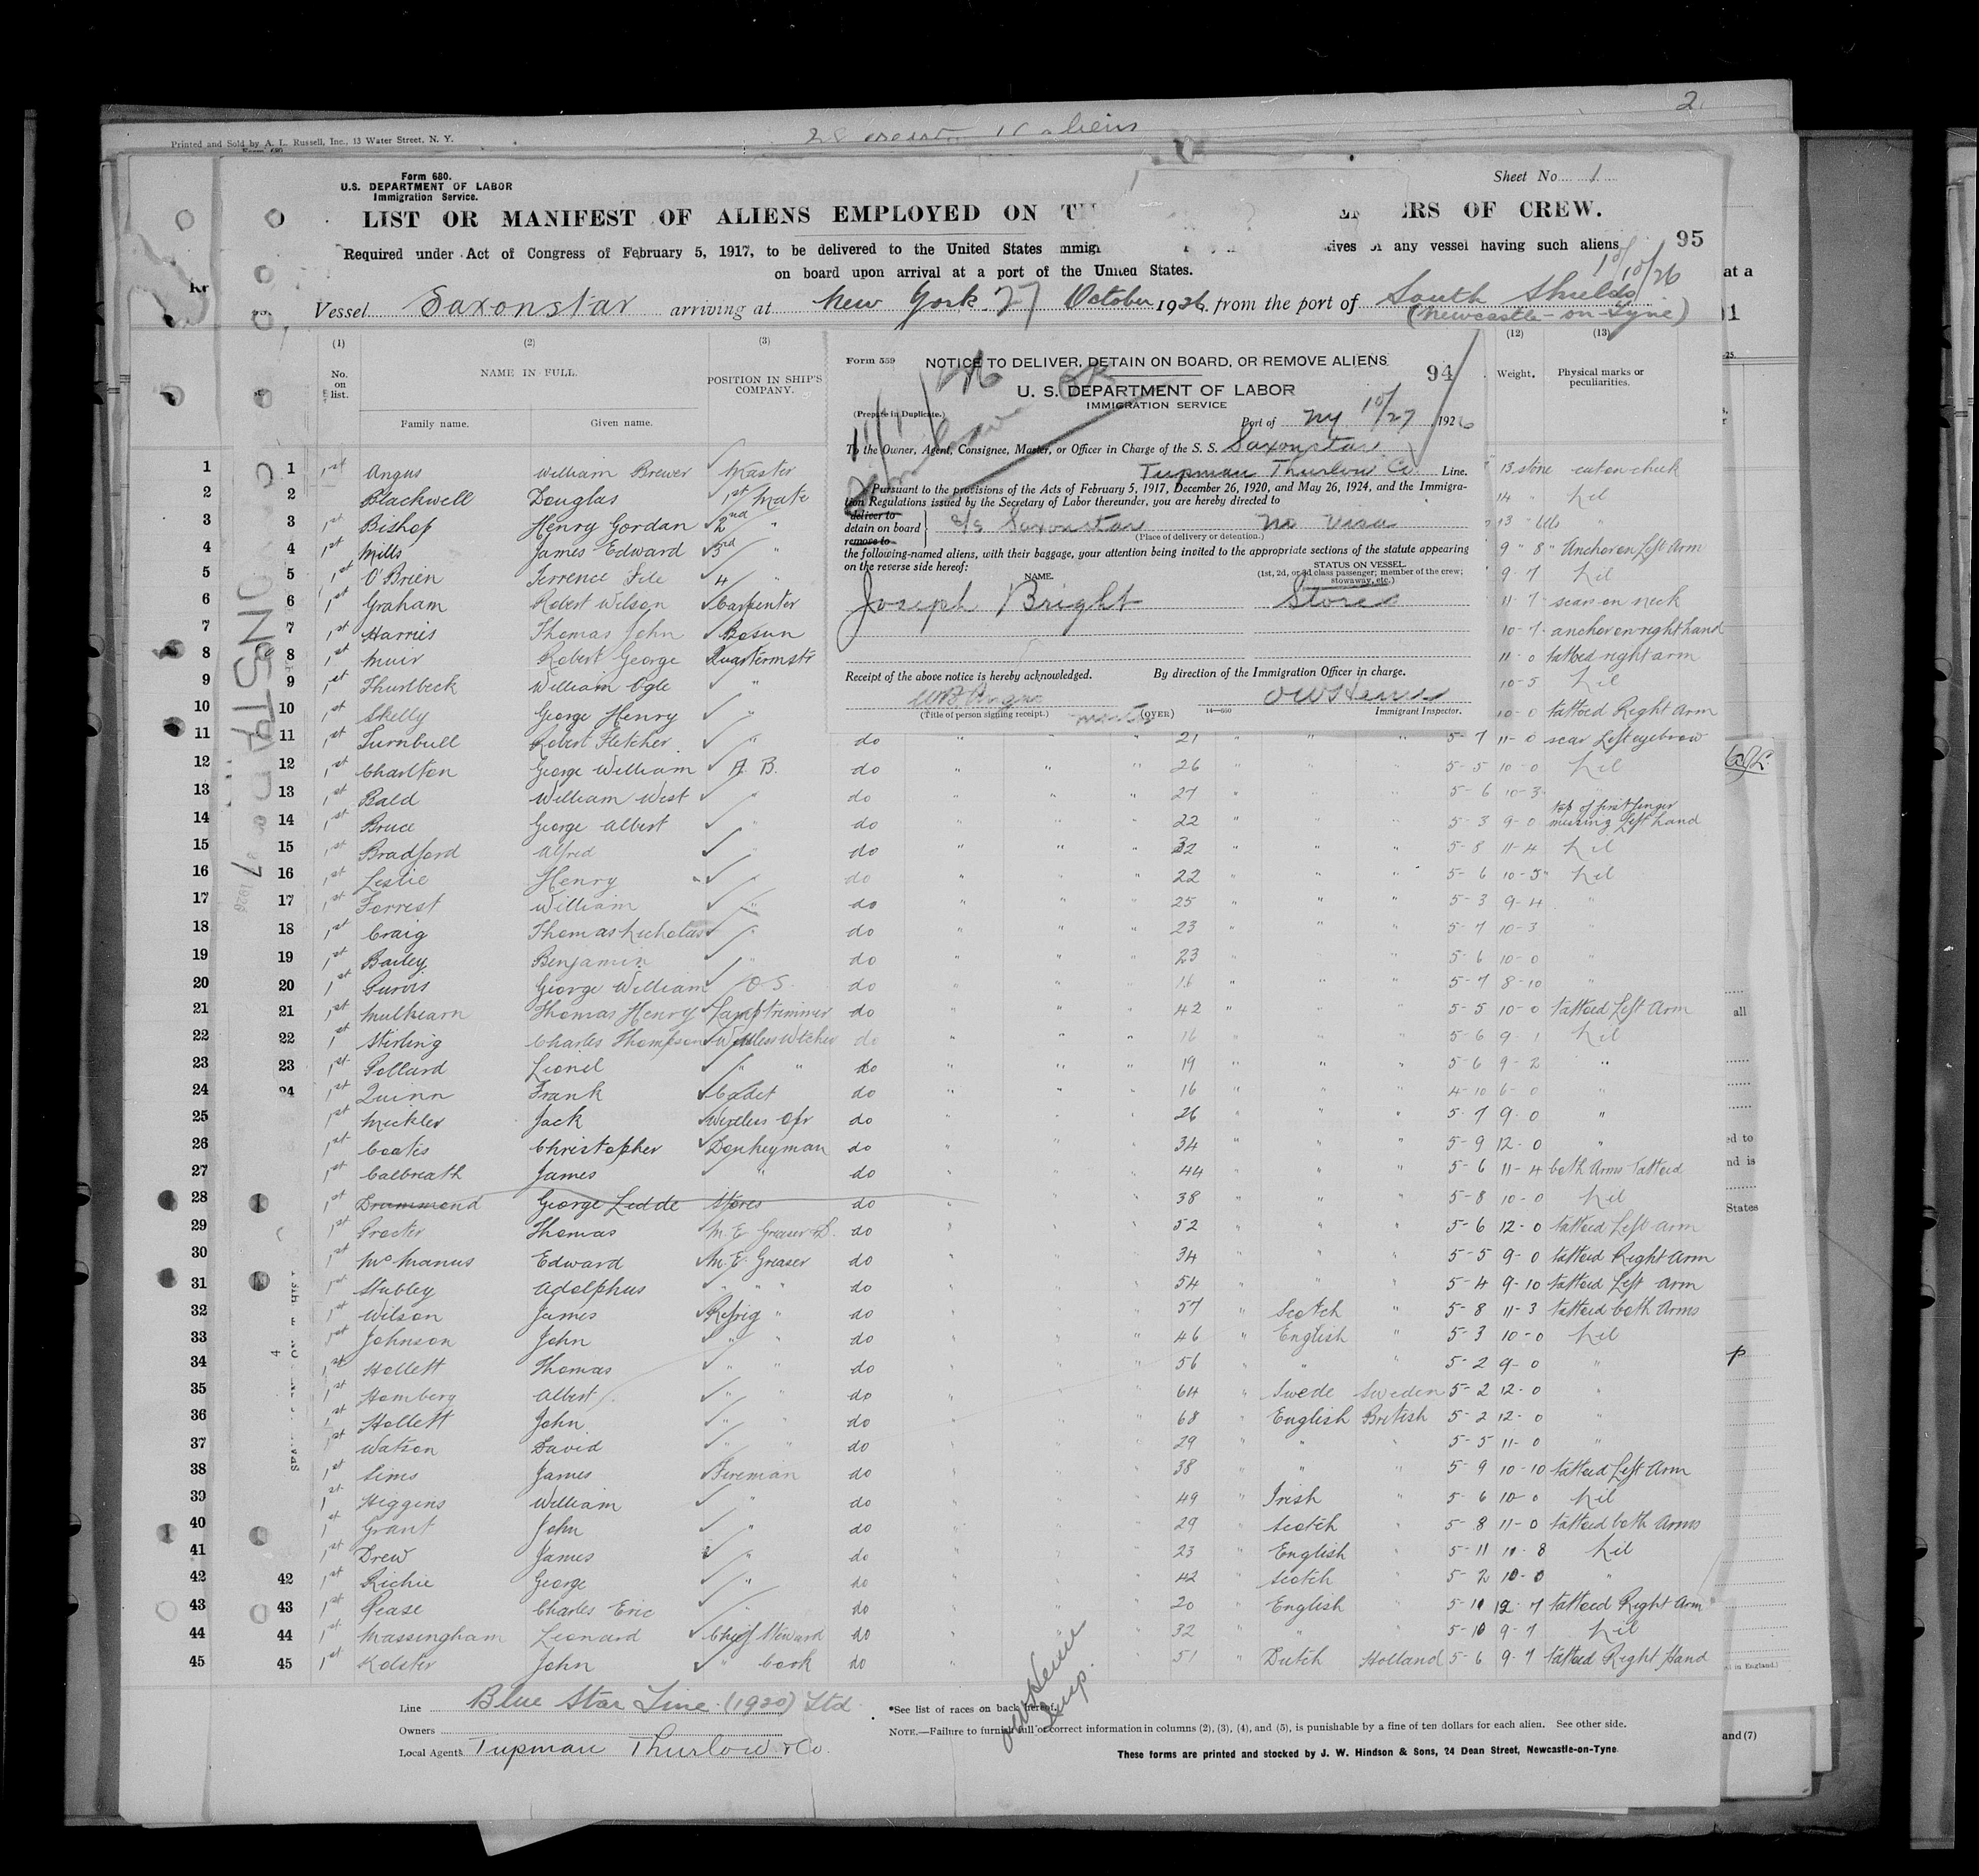 2
Printed and Sold by A. L. Russell, Inc., 13 Water Street, N. Y.
aliens
Form 680.
U.S. DEPARTMENT OF LABOR
Immigration Service.
Sheet No. 1
LIST OR MANIFEST OF ALIENS EMPLOYED ON OF CREW.
95
Required under Act of Congress of February 5, 1917, to be delivered to the United States any vessel having such aliens
on board upon arrival at a port of the United States.
10/10/26
at a
Vessel Saxonstar arriving at New York. 27 October 1926, from the port of South Shields
(Newcastle-on-Tyne)
(1) (2) (3) (12) (13)
No. on list. NAME IN FULL. POSITION IN SHIP'S COMPANY. Weight. Physical marks or peculiarities.
Family name. Given name.
Form 559 NOTICE TO DELIVER, DETAIN ON BOARD, OR REMOVE ALIENS
94
U. S. DEPARTMENT OF LABOR
IMMIGRATION SERVICE
(Prepare in Duplicate.)
Port of NY 10/27 1926
To the Owner, Agent, Consignee, Master, or Officer in Charge of the S. S. Saxonstar
Tupman Thurlow Co. Line.
Pursuant to the provisions of the Acts of February 5, 1917, December 26, 1920, and May 26, 1924, and the Immigra-
tion Regulations issued by the Secretary of Labor thereunder, you are hereby directed to
deliver to
detain on board s/s Saxonstar no visa
remove to (Place of delivery or detention.)
the following-named aliens, with their baggage, your attention being invited to the appropriate sections of the statute appearing
on the reverse side hereof:
NAME. STATUS ON VESSEL
(1st, 2d, or 3d class passenger; member of the crew; stowaway, etc.)
Joseph Bright Stores
Receipt of the above notice is hereby acknowledged. By direction of the Immigration Officer in charge.
(Title of person signing receipt.) master (OVER) 14—660 Immigrant Inspector.
1 1 1st Angus William Brewer Master 13 stone cut on cheek
2 2 Blackwell Douglas 1st Mate 14 " Nil
3 3 1st Bishop Henry Gordan 2nd " 13 "
4 4 1st Mills James Edward 3rd " 9 " 8 " Anchor on Left Arm
5 5 1st O'Brien Terrence 4 " 9-7 Nil
6 6 1st Graham Robert Wilson Carpenter 11-7 scar on neck
7 7 1st Harries Thomas John Bosun 10-7 anchor on right hand
8 8 1st Muir Robert George Quartermstr 11-0 tattoed right arm
9 9 1st Thurlbeck William Ogle " 10-5 Nil
10 10 1st Skelly George Henry " 10-0 tattoed Right Arm
11 11 1st Turnbull Robert Fletcher " do " " " 21 " " " 5-7 11-0 scar Left eyebrow
12 12 1st Charlton George William A. B. do " " " 26 " " " 5-5 10-0 Nil
13 13 1st Bald William West " do " " " 27 " " " 5-6 10-3 "
14 14 1st Bruce George Albert " do " " " 22 " " " 5-3 9-0 top of first finger missing Left hand
15 15 1st Bradford Alfred " do " " " 32 " " " 5-8 11-4 Nil
16 16 1st Leslie Henry " do " " " 22 " " " 5-6 10-5 Nil
17 17 1st Forrest William " do " " " 25 " " " 5-3 9-4 "
18 18 1st Craig Thomas Nicholas " do " " " 23 " " " 5-7 10-3 "
19 19 1st Bailey Benjamin " do " " " 23 " " " 5-6 10-0 "
20 20 1st Purvis George William O S. do " " " 16 " " " 5-7 8-10 "
21 21 1st Mulhearn Thomas Henry Lamptrimmer do " " " 42 " " " 5-5 10-0 tattoed Left Arm
22 22 1st Stirling Charles Thompson Wireless Wtcher do " " " 16 " " " 5-6 9-1 Nil
23 23 1st Pollard Lionel " " do " " " 19 " " " 5-6 9-2 "
24 24 1st Quinn Frank Cadet do " " " 16 " " " 4-10 6-0 "
25 1st Mickler Jack Wireless Opr do " " " 26 " " " 5-7 9-0 "
26 1st Coates Christopher Donkeyman do " " " 34 " " " 5-9 12-0 "
27 1st Calbreath James " do " " " 44 " " " 5-6 11-4 both Arms tattoed
28 1st Drummond George Ledde Stores do " " " 38 " " " 5-8 10-0 Nil
29 1st Procter Thomas M. E Greaser do " " " 52 " " " 5-6 12-0 tattoed Left arm
30 1st McManus Edward M. E. Greaser do " " " 34 " " " 5-5 9-0 tattoed Right Arm
31 1st Stubley Adolphus " " " do " " " 54 " " " 5-4 9-10 tattoed Left Arm
32 1st Wilson James Refrig " do " " " 57 " Scotch " 5-8 11-3 tattoed both Arms
33 1st Johnson John " " do " " " 46 " English " 5-3 10-0 Nil
34 1st Hollett Thomas " " do " " " 56 " " " 5-2 9-0 "
35 1st Homberg Albert " " do " " " 64 " Swede Sweden 5-2 12-0 "
36 1st Hollett John " " do " " " 68 " English British 5-2 12-0 "
37 1st Watson David " " do " " " 29 " " " 5-5 11-0 "
38 1st Sims James Fireman do " " " 38 " " " 5-9 10-10 tattoed Left Arm
39 1st Higgins William " do " " " 49 " Irish " 5-6 10-0 Nil
40 1st Grant John " do " " " 29 " Scotch " 5-8 11-0 tattoed both Arms
41 1st Drew James " do " " " 23 " English " 5-11 11-8 Nil
42 42 1st Richie George " do " " " 42 " Scotch " 5-2 10-0 "
43 43 1st Pease Charles Eric " do " " " 20 " English " 5-10 12-7 tattoed Right Arm
44 44 1st Massingham Leonard Chief Steward do " " " 32 " " " 5-10 9-7 Nil
45 45 1st Kolster John " Cook do " " " 51 " Dutch Holland 5-6 9-7 tattoed Right Hand
Line Blue Star Line (1920) Ltd
*See list of races on back hereof.
Owners
NOTE.—Failure to furnish full or correct information in columns (2), (3), (4), and (5), is punishable by a fine of ten dollars for each alien. See other side.
Local Agents Tupman Thurlow & Co.
These forms are printed and stocked by J. W. Hindson & Sons, 24 Dean Street, Newcastle-on-Tyne
all
ed to
nd is
States
in England.)
and (7)